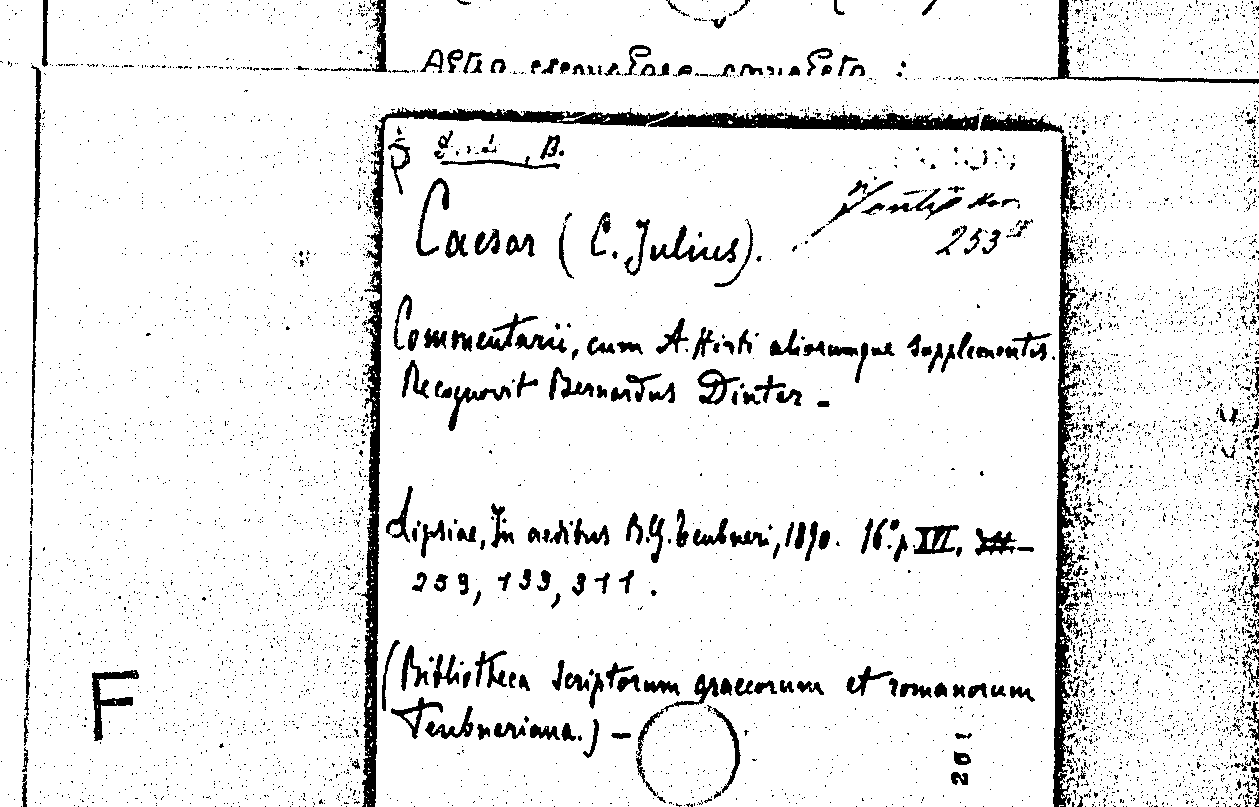 Altro esemplare completo :
B.
Caesar (C. Julius).
253
Commentarii, cum A. Hirti aliorumque supplementis.
Recognovit Bernardus Dinter -
Lipsiae, In aedibus B.G. Teubneri, 1890. 16° p. XVI,
253, 133, 311.
F
(Bibliotheca scriptorum graecorum et romanorum
Teubneriana.) -
201